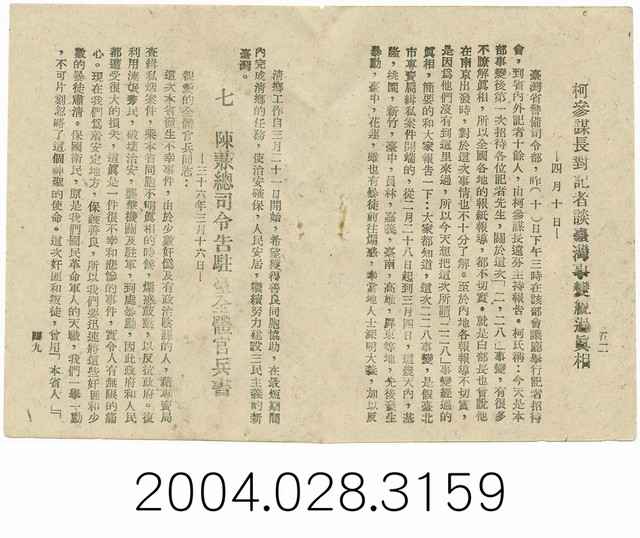 五二
柯參謀長對記者談臺灣事變經過眞相
—四月十日—
臺灣省警備司令部,昨(十)日下午三時在該部會議廳舉行記者招待
會,到省內外記者十餘人,由柯參謀長遠芬主持報告。柯氏稱:今天是本
部事變後第一次招待各位記者先生,關於這次「二,二八」事變,有很多
不瞭解眞相,所以全國各地的報紙報導,都不切實。就是白部長也曾說他
在南京出發時,對於這次事情也不十分了解。至於內地各報報導不切實,
是因爲他們沒有到這里來過,所以今天想把這次所謂「二二八」事變經過的
眞相,簡要的和大家報告一下:大家都知道,這次二二八事變,是假臺北
市專賣局緝私案件開端的,從二月二十八日起到三月四日,這幾天內,基
隆,桃園,新竹,臺中,員林,嘉義,臺南,高雄,屏東等地,先後發生
暴動,臺中,花蓮,雖也有暴徒前往煽惑,幸當地人士深明大義,加以反
清鄉工作自三月二十一日開始,希望獲得善良同胞協助,在最短期間
內完成清鄉的任務,使治安確保,人民安居,繼續努力建設三民主義的新
臺灣。
七 陳兼總司令告駐臺全體官兵書
—三十六年三月十六日—
親愛的全體官兵同志:
這次本省發生不幸事件,由於少數奸僞及有政治陰謀的人,藉專賣局
查緝私烟案件,乘本省同胞不明眞相的時候,煽惑鼓動,以反抗政府。復
利用流氓莠民,破壞治安,襲擊機關及駐軍,到處暴動,因此政府和人民
都遭受很大的損失,這眞是一件很不幸和悲慘的事件,實令人有無限的痛
心。現在我們爲着安定地方,保護善良,所以我們要迅速將這些奸匪和少
數的暴徒肅清。保國衛民,原是我們國民革命軍人的天職,我們一舉一動
,不可片刻忽略了這個神聖的使命。這次奸匪和叛徒,曾用「本省人」「
附九
2004.028.3159